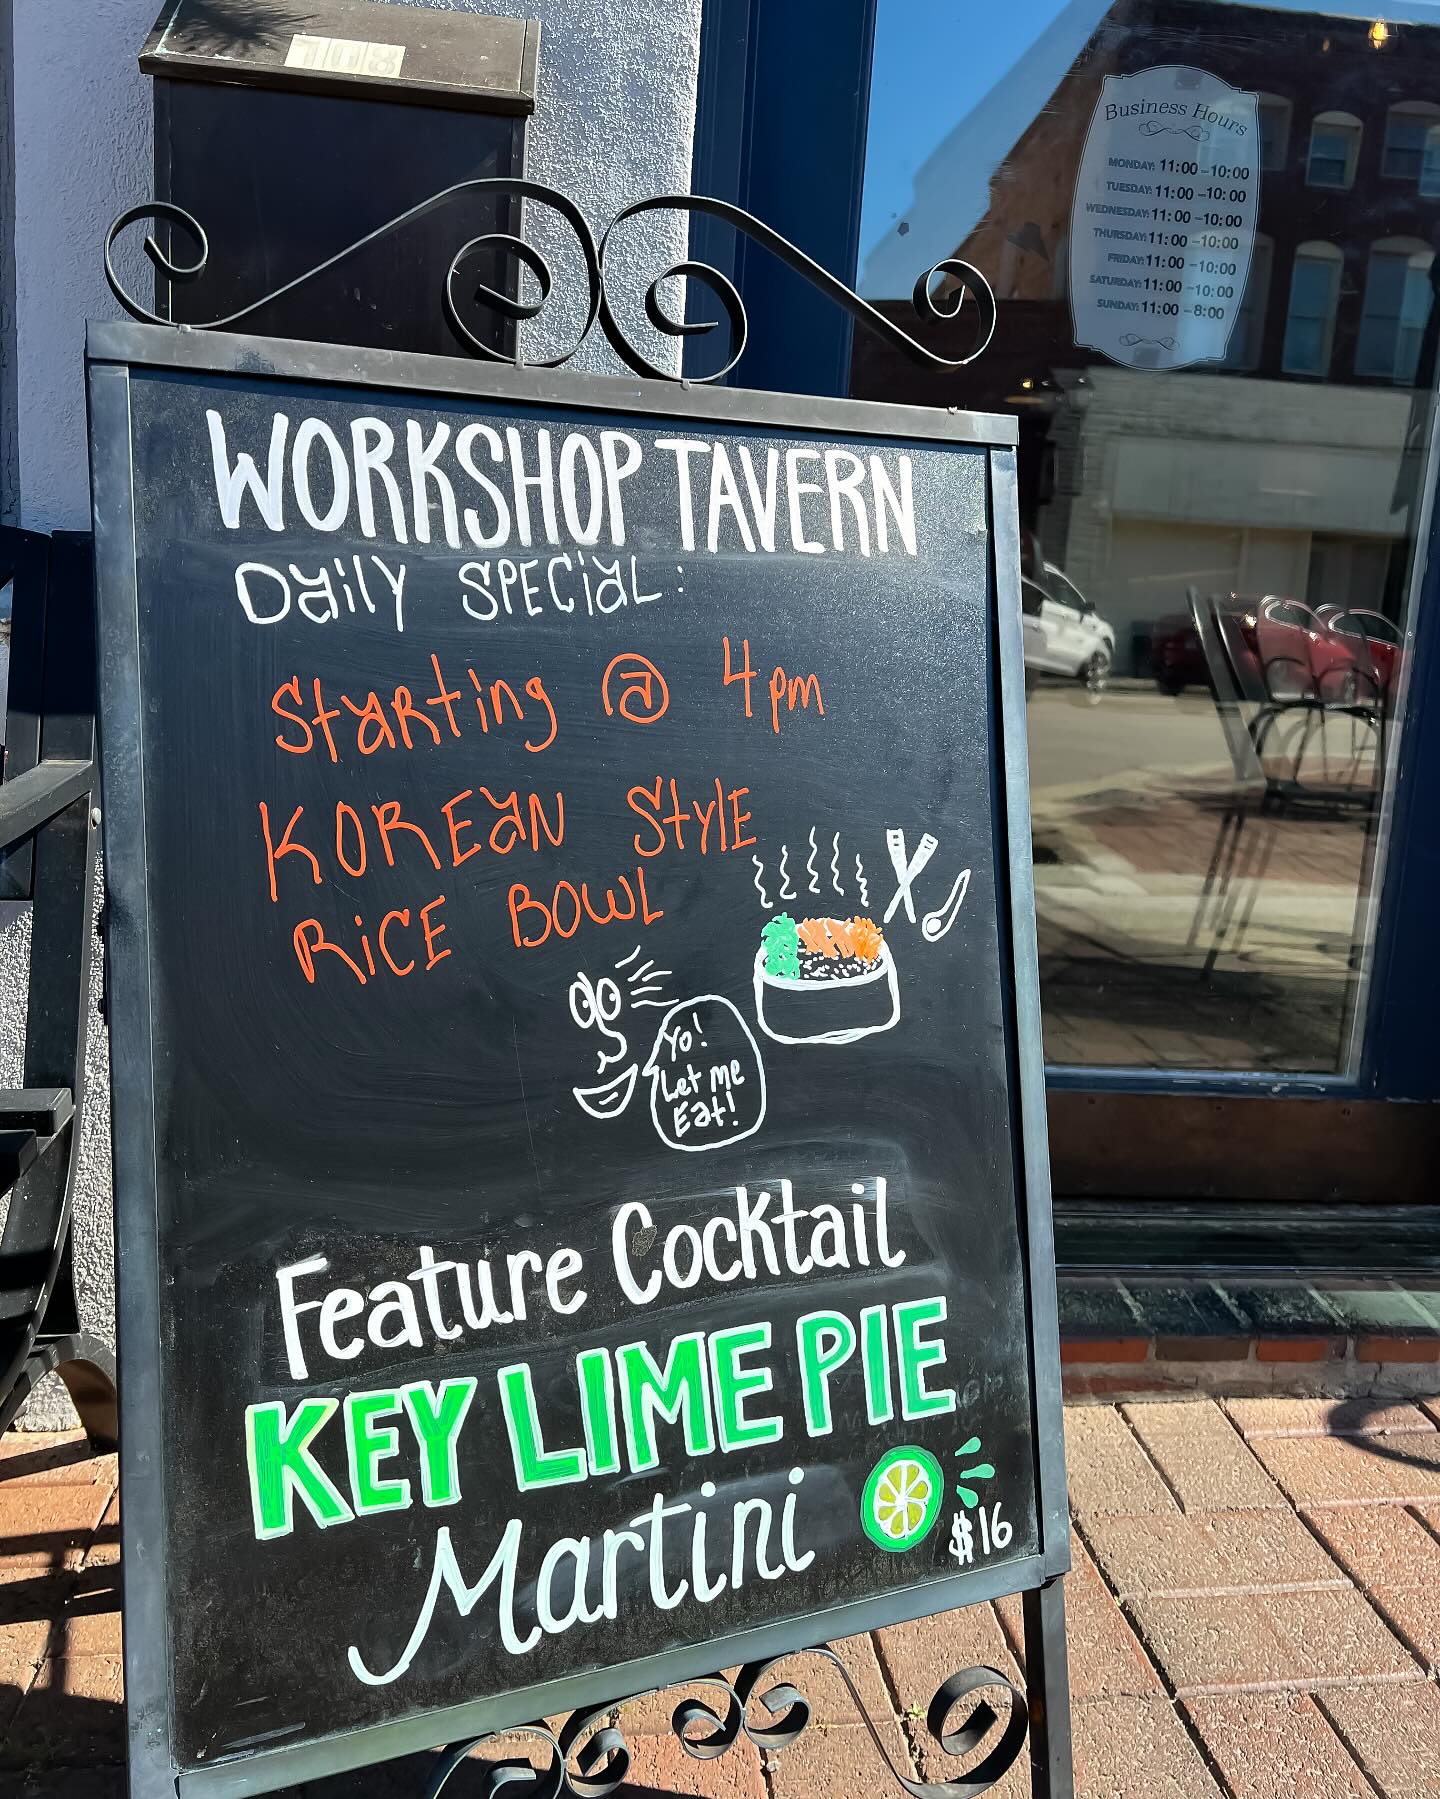 108
Business Hours
MONDAY: 11:00-10:00
TUESDAY: 11:00-10:00
WEDNESDAY: 11:00-10:00
THURSDAY: 11:00-10:00
FRIDAY: 11:00-10:00
SATURDAY: 11:00-10:00
SUNDAY: 11:00-8:00
WORKSHOP TAVERN
Daily SPECiaL:
Starting @ 4pm
KOREaN StylE
RiCE BOWL
Yo!
Let me
Eat!
Feature Cocktail
KEY LIME PIE
Martini
$16